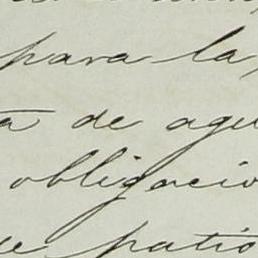 para la
de agu
obligacio
patio